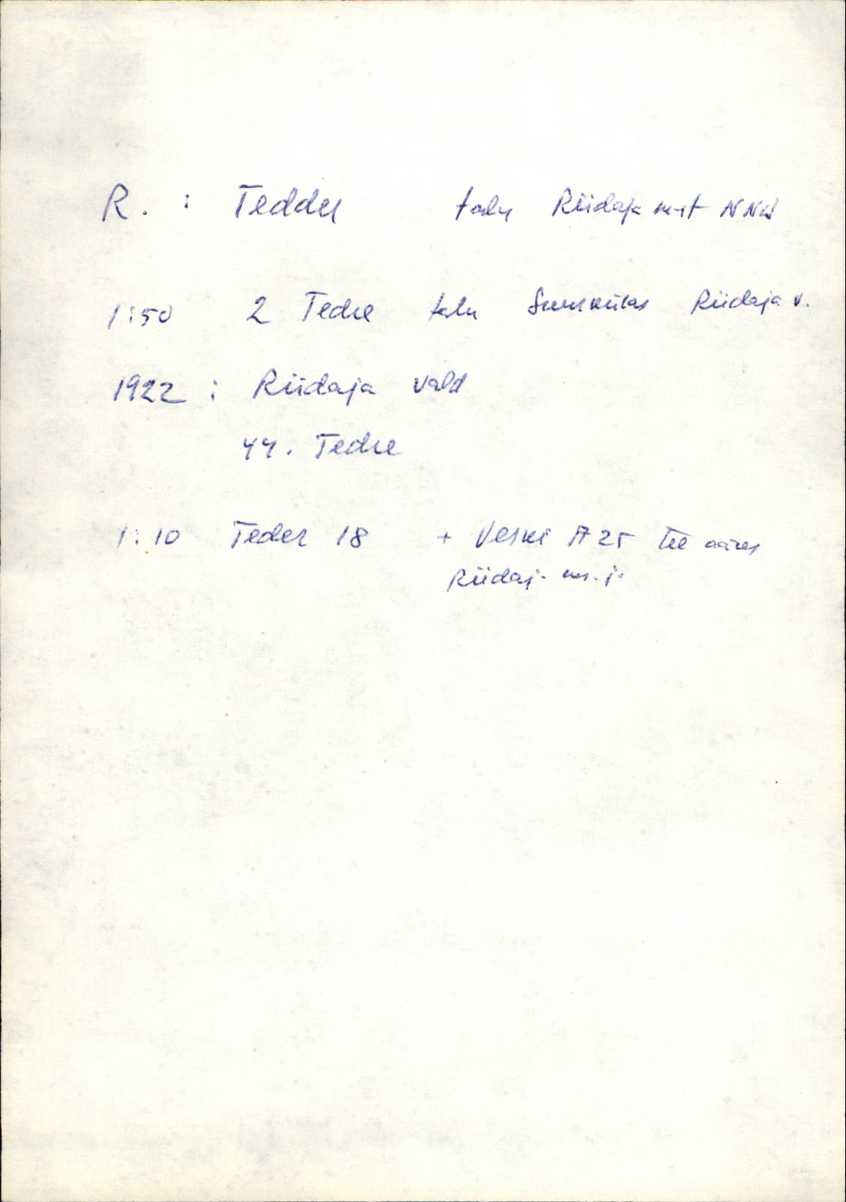 R. : Tedder talu Riidaja m-st NNW
1:50 2 Tedre talu Suurkülas Riidaja v.
1922 : Riidaja vald
44. Tedre
1:10 Teder 18 + Veski A 25 Tee ääres
Riidaj. j.